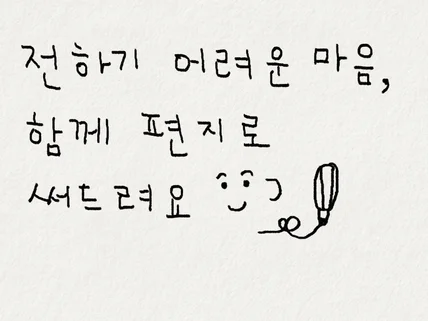 전하기 어려운 마음,
함께 편지로
써드려요